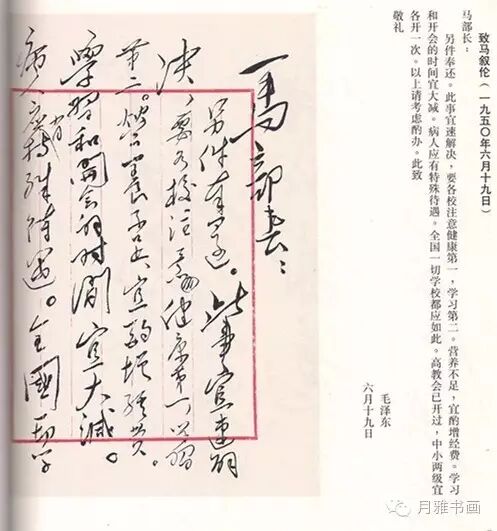 致马叙伦（一九五〇年六月十九日）
马部长：
另件奉还。此事宜速解决，要各校注意健康第一，学习第二。营养不足，宜酌增经费。学习
和开会的时间宜大减。病人应有特殊待遇。全国一切学校都应如此。高教会已开过，中小两级宜
各开一次。以上请考虑酌办。此致
敬礼
毛泽东
六月十九日
马部长：
另件奉还。此事宜速解
决，要各校注意健康第一，学习
第二。营养不足，宜酌增经费。
學習和開会的时間宜大減。
病人應有特殊待遇。全國一切学
月雅书画